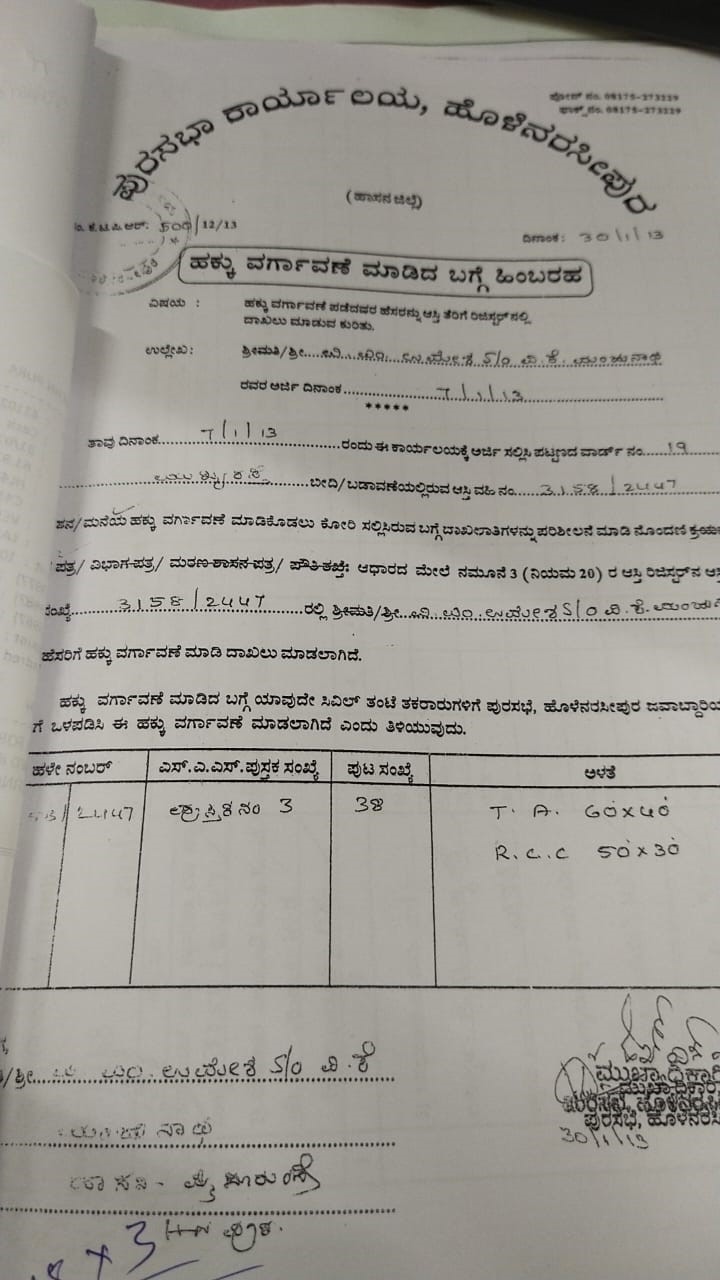 ಪುರಸಭಾ ಕಾರ್ಯಾಲಯ, ಹೊಳೆನರಸೀಪುರ
ಫೋನ್ ನಂ. 08175-273229
ಫ್ಯಾಕ್ಸ್ ನಂ. 08175-273229
(ಹಾಸನ ಜಿಲ್ಲೆ)
/12/13
ದಿನಾಂಕ: 30/1/13
ಹಕ್ಕು ವರ್ಗಾವಣೆ ಮಾಡಿದ ಬಗ್ಗೆ ಹಿಂಬರಹ
ವಿಷಯ : ಹಕ್ಕು ವರ್ಗಾವಣೆ ಪಡೆದವರ ಹೆಸರನ್ನು ಆಸ್ತಿ ತೆರಿಗೆ ರಿಜಿಸ್ಟರ್‌ನಲ್ಲಿ
ದಾಖಲು ಮಾಡುವ ಕುರಿತು.
ಉಲ್ಲೇಖ: ಶ್ರೀಮತಿ/ಶ್ರೀ.... ಉಮೇಶ S/o ವಿ.ಕೆ. ಮಂಜುನಾಥ
ರವರ ಅರ್ಜಿ ದಿನಾಂಕ 7/1/13
*****
ತಾವು ದಿನಾಂಕ 7/1/13 ರಂದು ಈ ಕಾರ್ಯಲಯಕ್ಕೆ ಅರ್ಜಿ ಸಲ್ಲಿಸಿ ಪಟ್ಟಣದ ವಾರ್ಡ್ ನಂ. 19
ಬೀದಿ/ಬಡಾವಣೆಯಲ್ಲಿರುವ ಆಸ್ತಿ ವಹಿ ನಂ. 3158/2447
ಶನ/ಮನೆಯ ಹಕ್ಕು ವರ್ಗಾವಣೆ ಮಾಡಿಕೊಡಲು ಕೋರಿ ಸಲ್ಲಿಸಿರುವ ಬಗ್ಗೆ ದಾಖಲಾತಿಗಳನ್ನು ಪರಿಶೀಲನೆ ಮಾಡಿ ನೊಂದಣಿ ಕ್ರಯ
ಪತ್ರ/ ವಿಭಾಗ ಪತ್ರ/ ಮರಣ ಶಾಸನ ಪತ್ರ/ ಪೌತಿ ಖಾತ್ರೆ ಆಧಾರದ ಮೇಲೆ ನಮೂನೆ 3 (ನಿಯಮ 20) ರ ಆಸ್ತಿ ರಿಜಿಸ್ಟರ್‌ನ ಆಸ್ತಿ
ಸಂಖ್ಯೆ 3158/2447 ರಲ್ಲಿ ಶ್ರೀಮತಿ/ಶ್ರೀ. ಉಮೇಶ S/o ವಿ.ಕೆ.
ಹೆಸರಿಗೆ ಹಕ್ಕು ವರ್ಗಾವಣೆ ಮಾಡಿ ದಾಖಲು ಮಾಡಲಾಗಿದೆ.
ಹಕ್ಕು ವರ್ಗಾವಣೆ ಮಾಡಿದ ಬಗ್ಗೆ ಯಾವುದೇ ಸಿವಿಲ್ ತಂಟೆ ತಕರಾರುಗಳಿಗೆ ಪುರಸಭೆ, ಹೊಳೆನರಸೀಪುರ ಜವಾಬ್ದಾರಿಯ
ಗೆ ಒಳಪಡಿಸಿ ಈ ಹಕ್ಕು ವರ್ಗಾವಣೆ ಮಾಡಲಾಗಿದೆ ಎಂದು ತಿಳಿಯುವುದು.
ಹಳೇ ನಂಬರ್ ಎಸ್.ಎ.ಎಸ್.ಪುಸ್ತಕ ಸಂಖ್ಯೆ ಪುಟ ಸಂಖ್ಯೆ ಅಳತೆ
2447 ಪುಸ್ತಕ ನಂ 3 38 T. A. 60×40
R.C.C 50×30
/ಶ್ರೀ. ಉಮೇಶ S/o ವಿ.ಕೆ
ಮಂಜುನಾಥ
ಹಾಸನ - ಮೈಸೂರು ರಸ್ತೆ
ಮುಖ್ಯಾಧಿಕಾರಿ
ಪುರಸಭೆ, ಹೊಳೆನರಸೀ
30/1/13